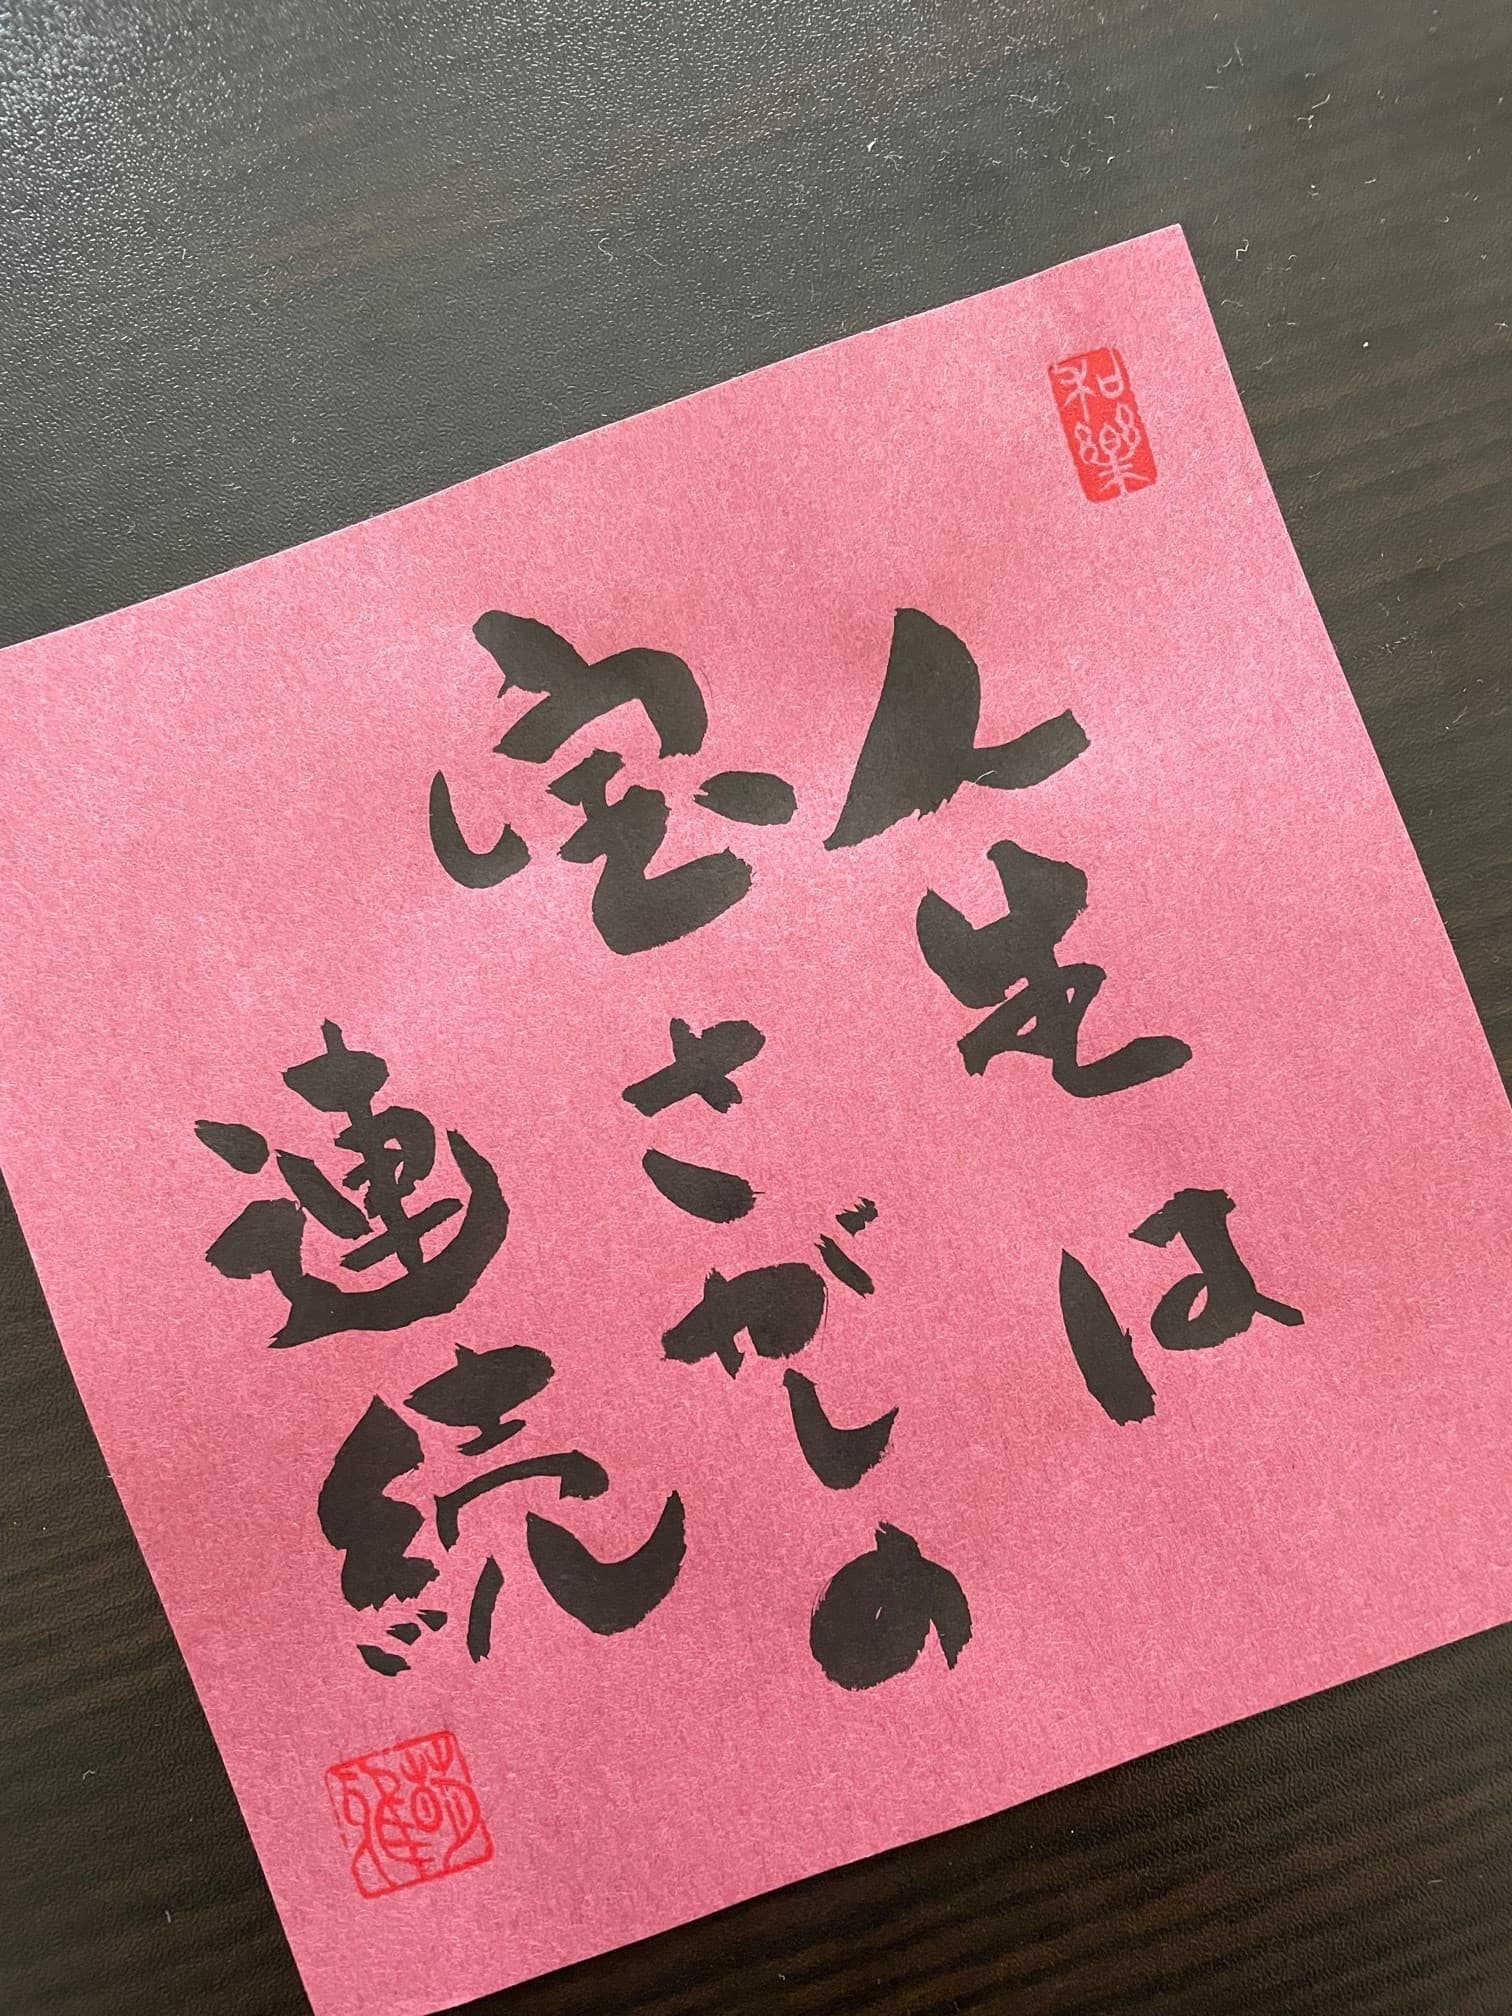 和樂
人生は
宝さがしの
連続